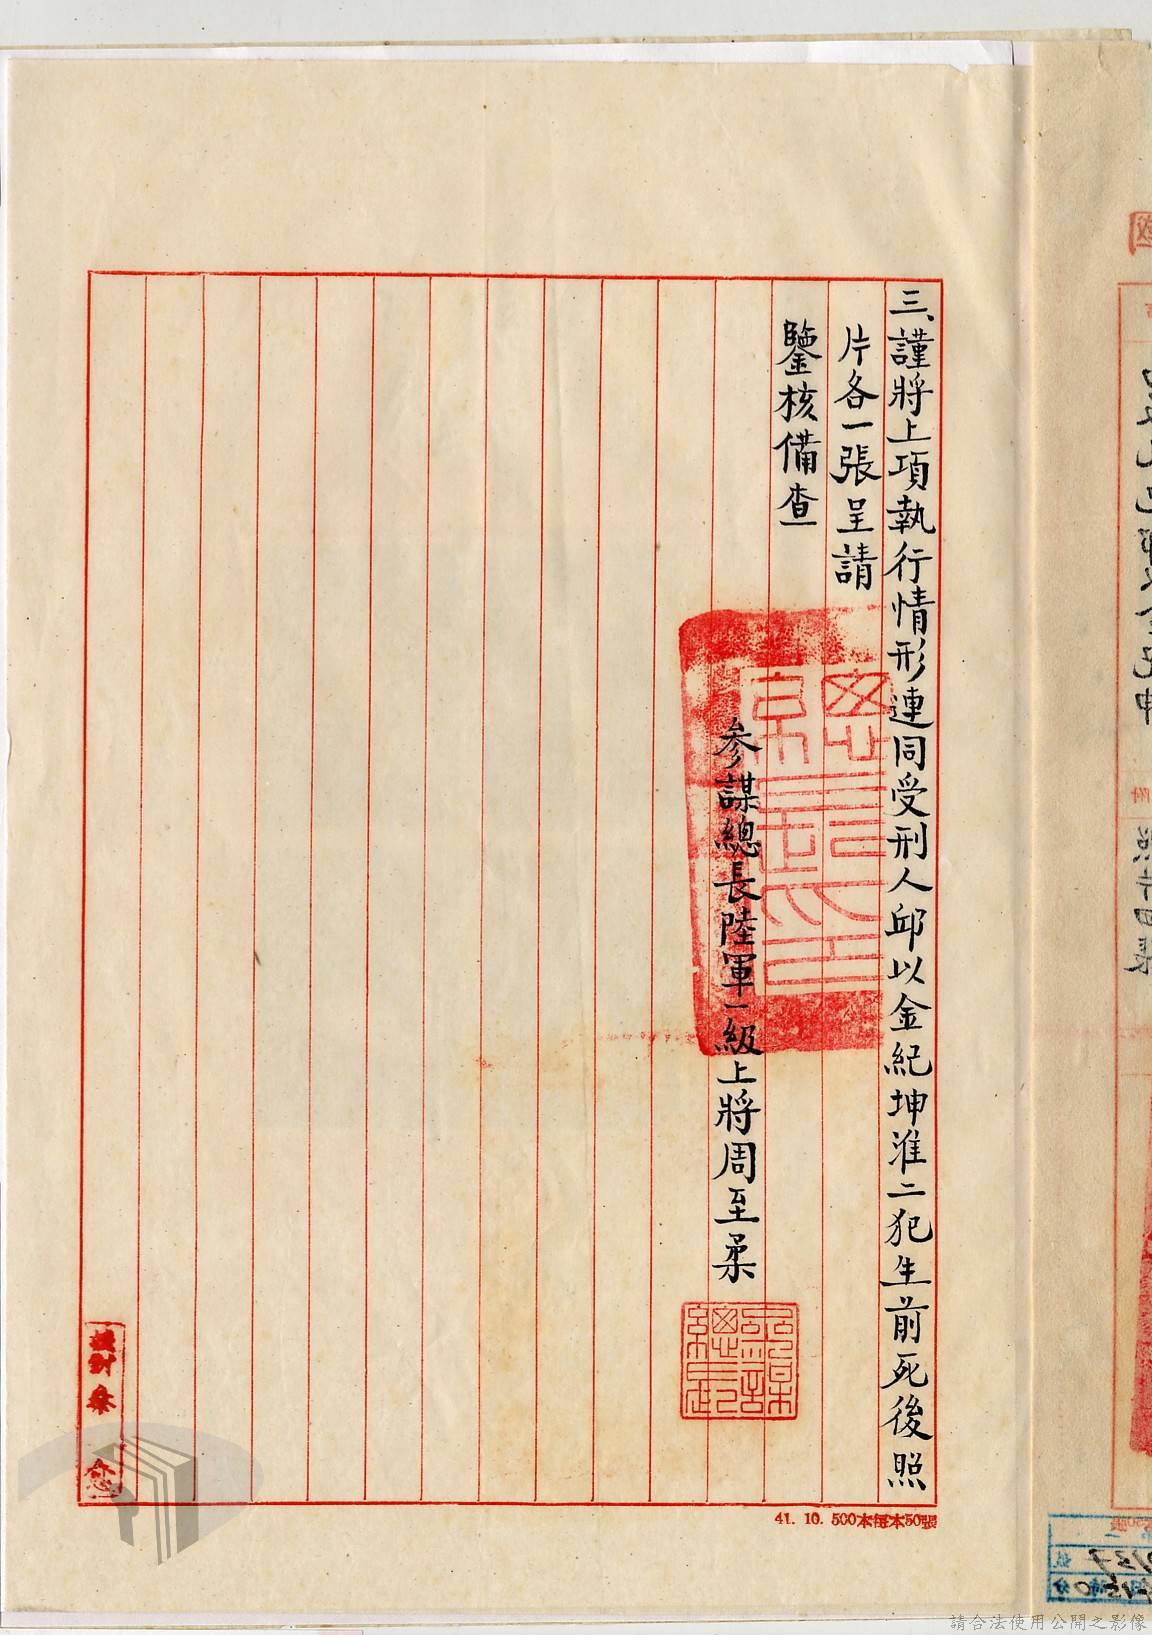 三、謹將上項執行情形連同受刑人邱以金紀坤淮二犯生前死後照
片各一張呈請
鑒核備查
參謀總長陸軍一級上將周至柔
參謀總長
校對秦 念
41. 10. 500本每本50張
請合法使用公開之影像